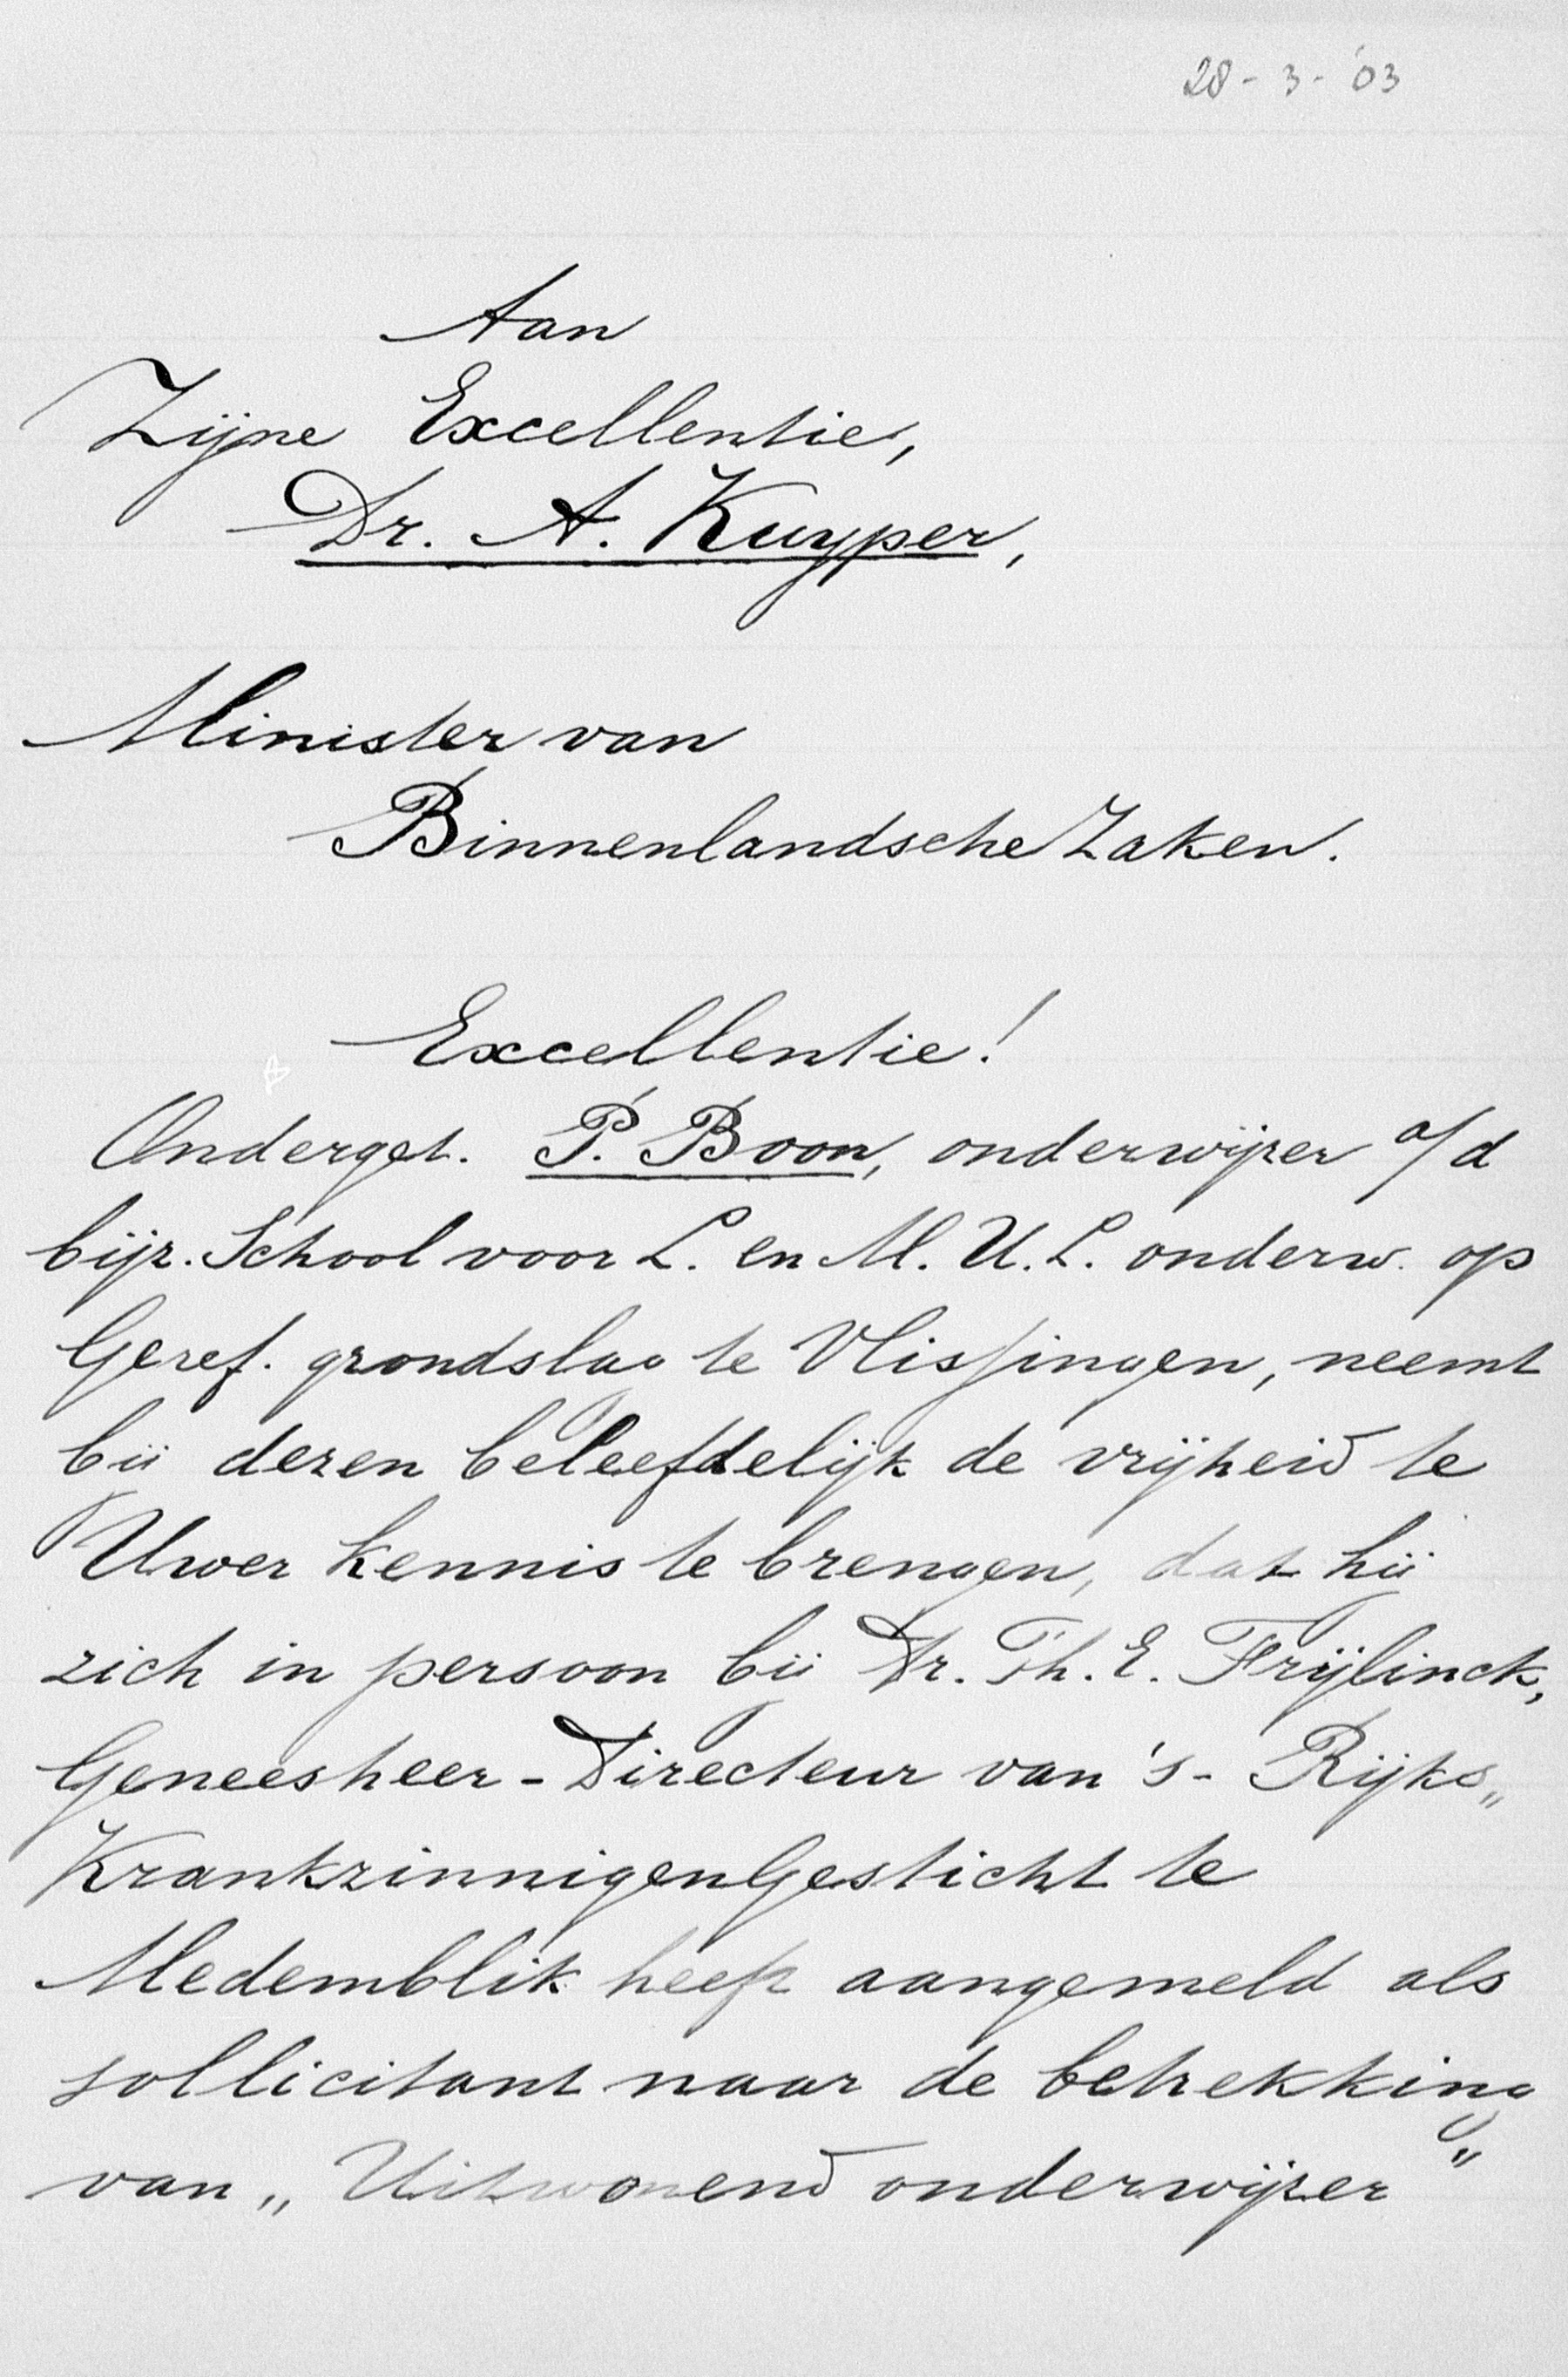 28-3-'03
Aan
Zijne Excellentie,
Dr. A. Kuyper,
Minister van
Binnenlandsche Zaken.
Excellentie!
Onderget. P. Boon, onderwijzer a/d
bijz. School voor L. en M. U. L. onderw. op
Geref. grondslag te Vlissingen, neemt
bij dezen beleefdelijk de vrijheid te
Uwer kennis te brengen, dat hij
zich in persoon bij Dr. Th. E. Frijlinck,
Geneesheer-Directeur van 's-Rijks„
KrankzinnigenGesticht te
Medemblik heeft aangemeld als
sollicitant naar de betrekking
van „Uitwonend onderwijzer"